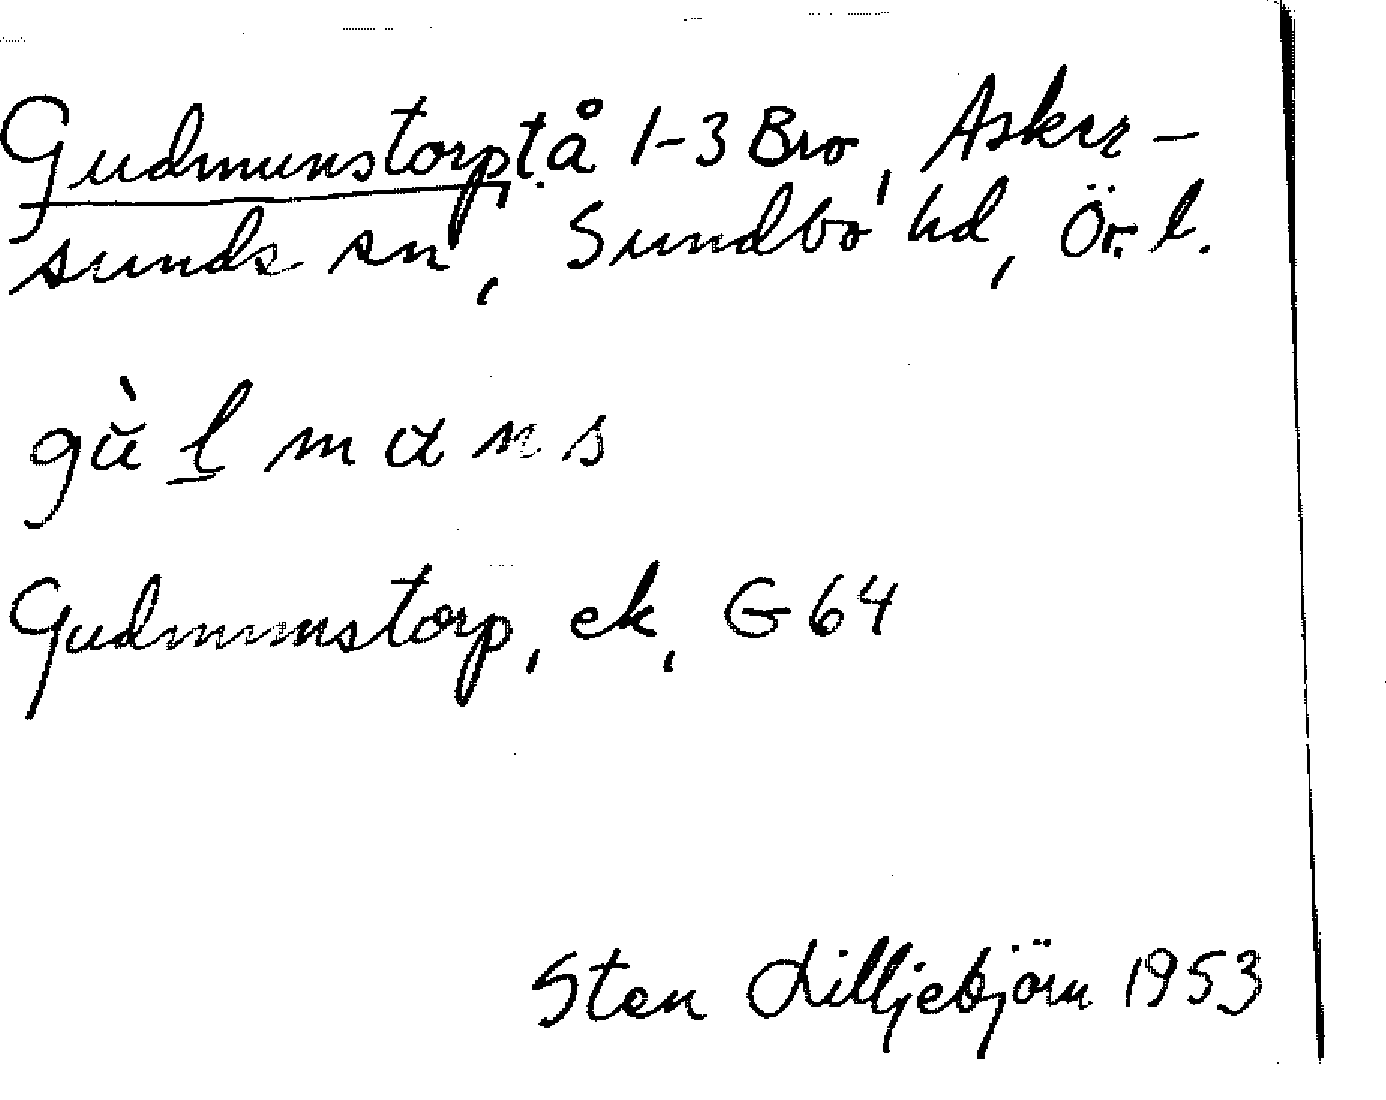 Gudmunstorp, t. å 1-3 Bro, Asker-
sunds sn, Sundbo hd, Ör. l.
gù l m a n s
Gudmunstorp, ek, G 64
Sten Lilljebjörn 1953